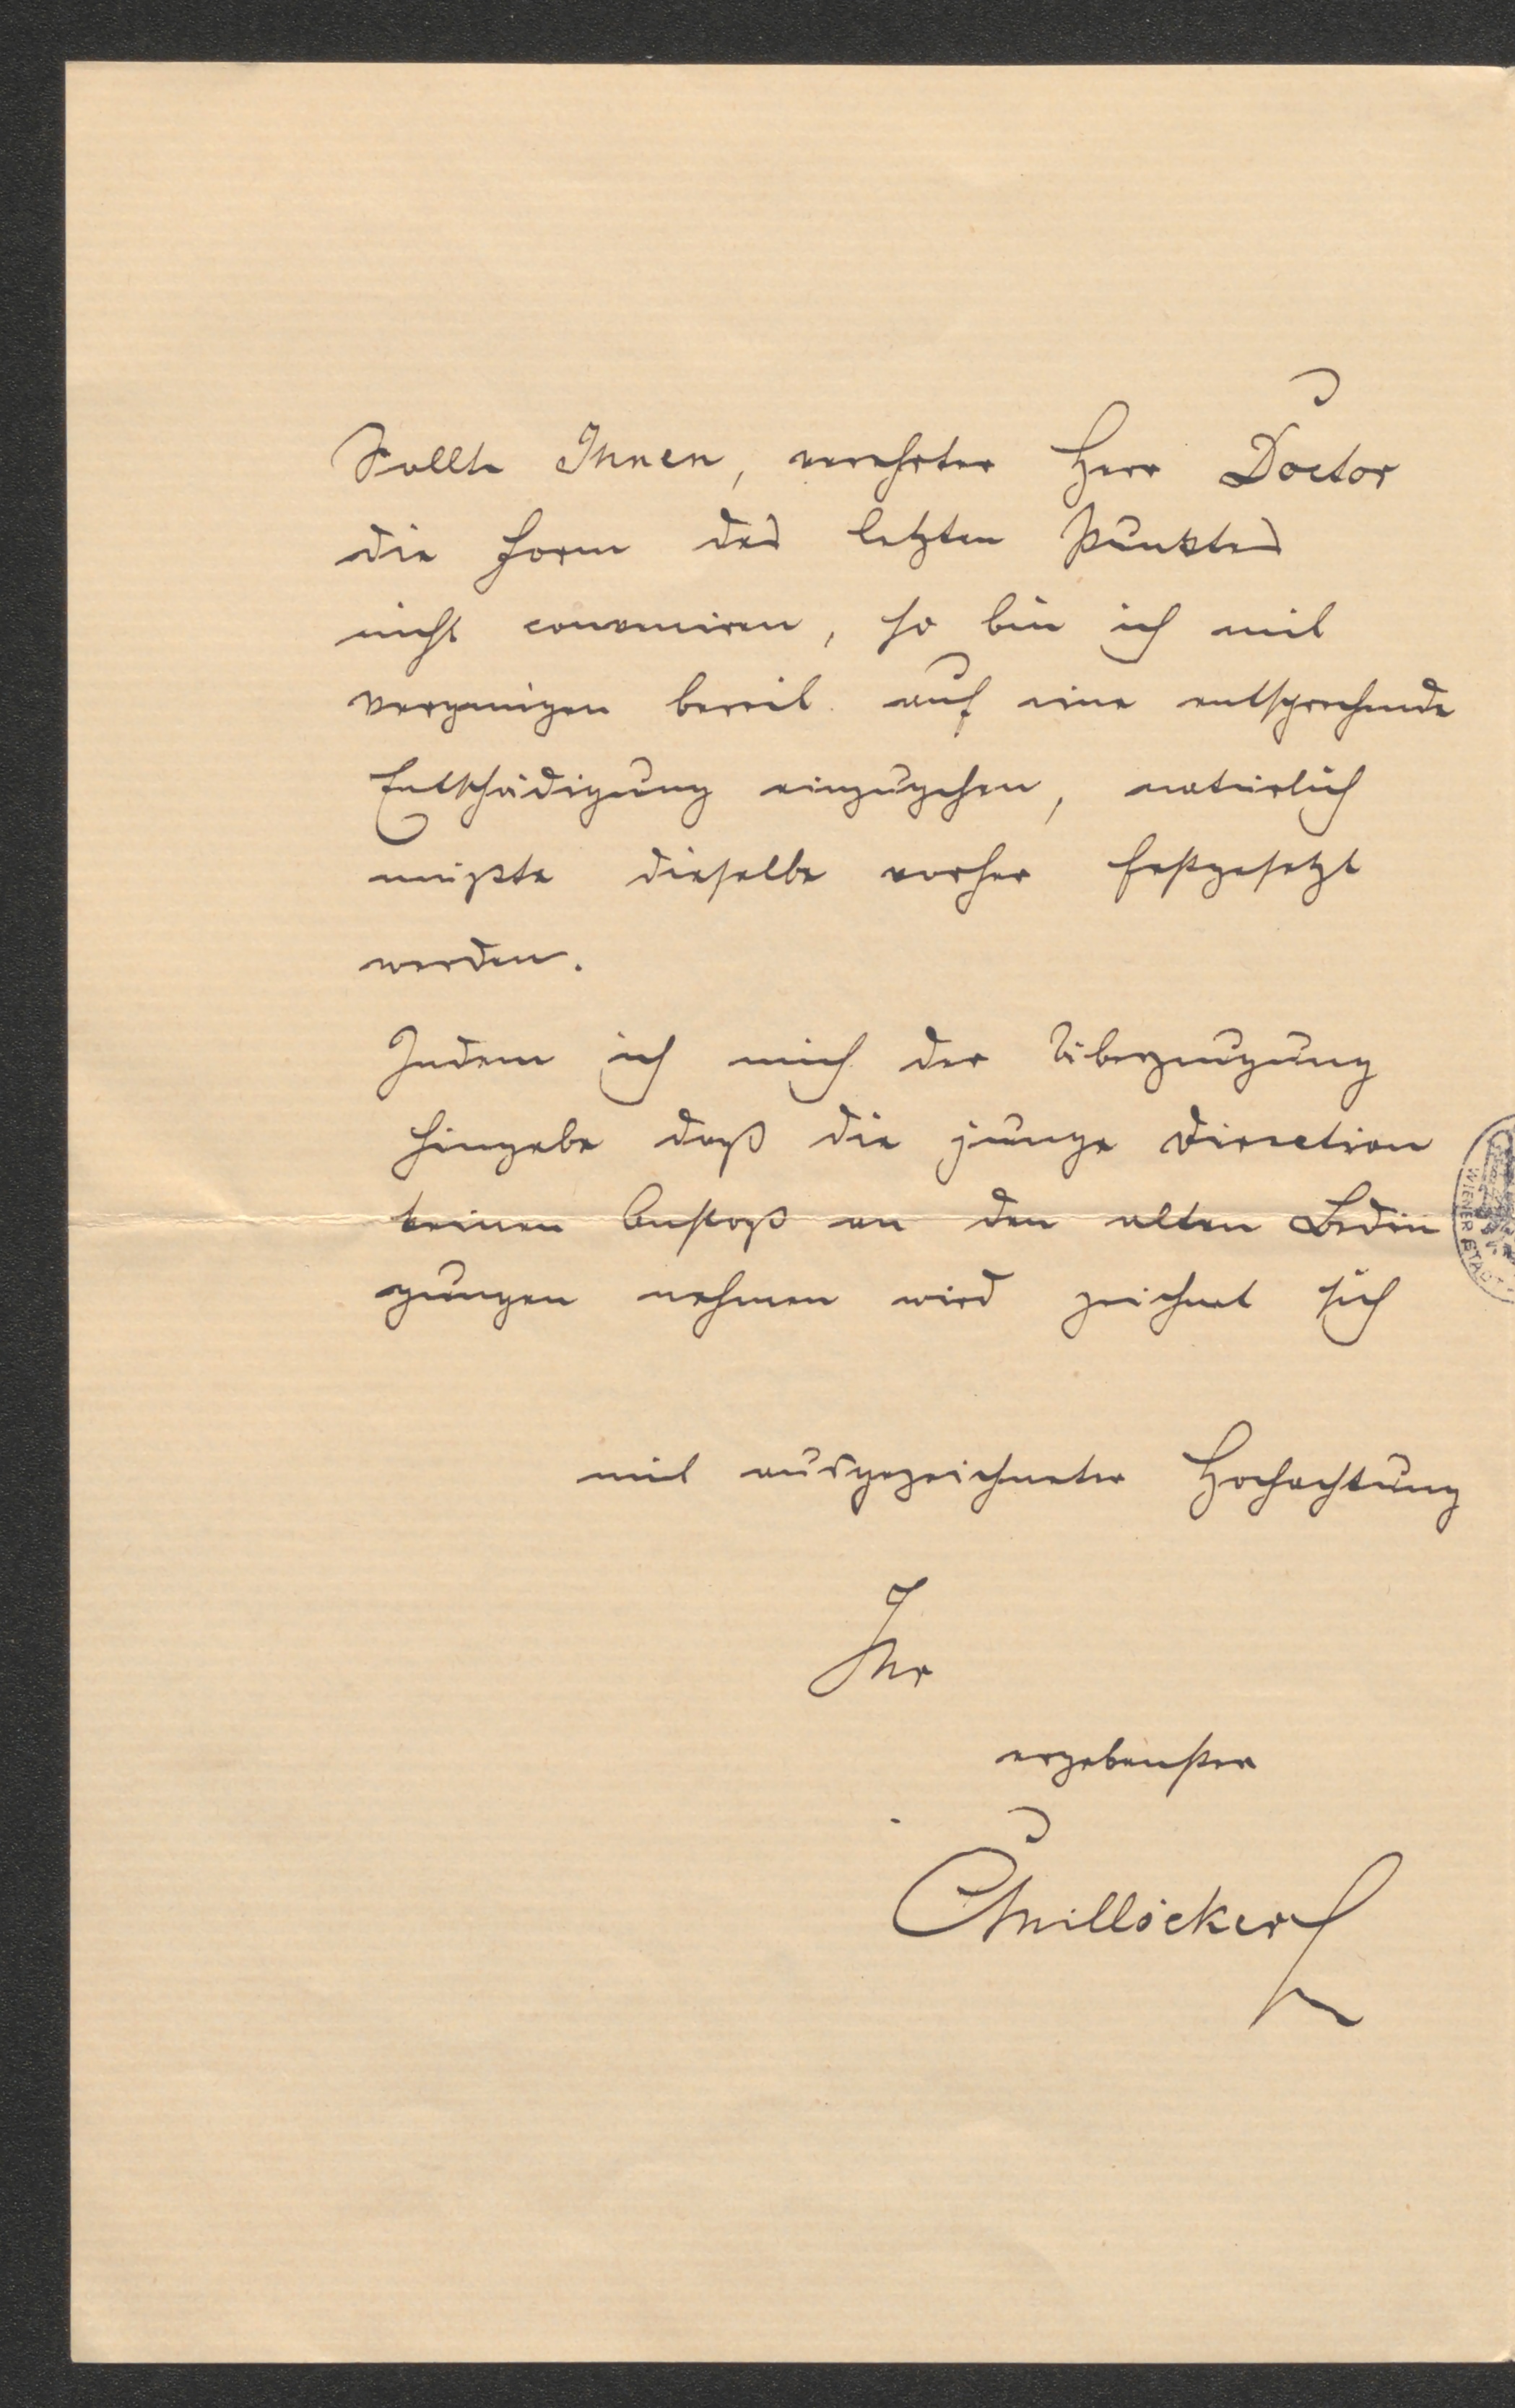 Sollte Ihnen, verehrter Herr Doctor
die Form des letzten Punktes
nicht conveniren, so bin ich mit
vergnügen bereit auf eine entsprechende
Entschädigung einzugehen, natürlich
müßte dieselbe vorher festgesetzt
werden.
Indem ich mich der Überzeugung
hingebe daß die junge Direction
keinen Anstoß an den alten Bedin
gungen nehmen wird zeichnet sich
mit ausgezeichneter Hochachtung
Ihr
ergebenster
CMillöcker
WIENER STADT